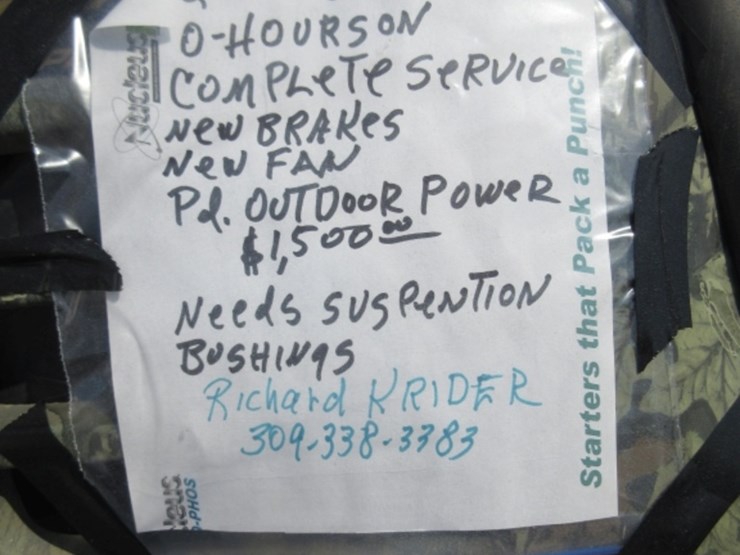 O-HOURS ON
COMPLeTe SeRVICe
New BRAKes
New FAN
Pd. OUTDOOR POWeR
$1,500.00
Needs SUSPeNTION
BUSHINgS
Richard KRIDER
309-338-3383
Nucleus
Starters that Pack a Punch!
-PHOS